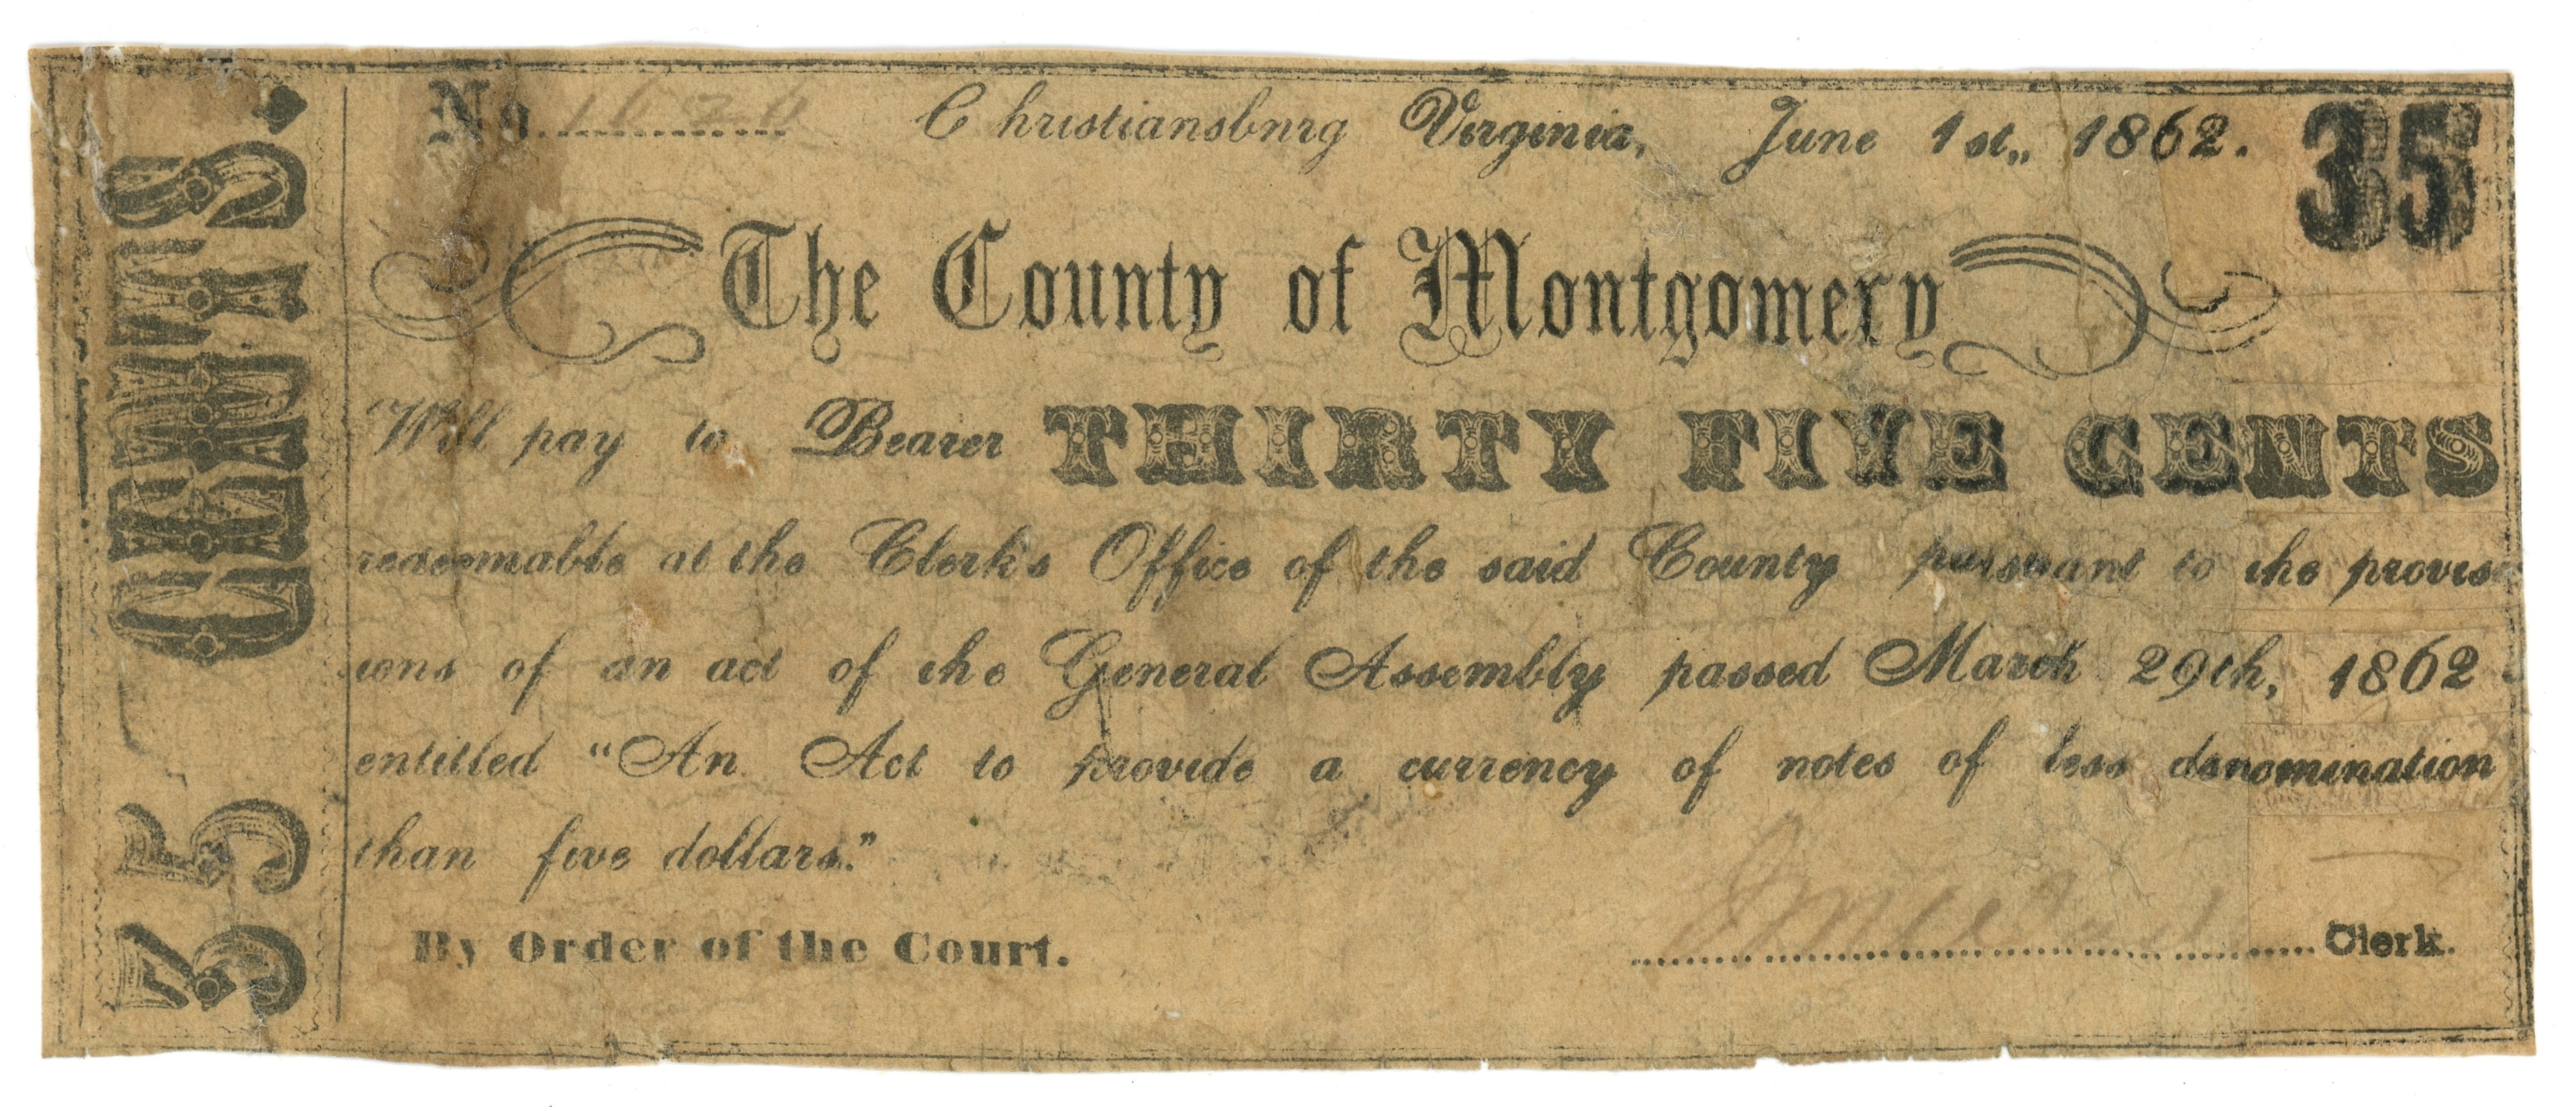 35 CENTS.
No. 1626 Christiansbnrg Virginia, June 1st,, 1862. 35
The County of Montgomery
Will pay to Bearer THIRTY FIVE CENTS
redeemable at the Clerk's Office of the said County pursuant to the provis-
ions of an act of the General Assembly passed March 29th, 1862
entitled “An Act to provide a currency of notes of less denomination
than five dollars.”
By Order of the Court. Clerk.